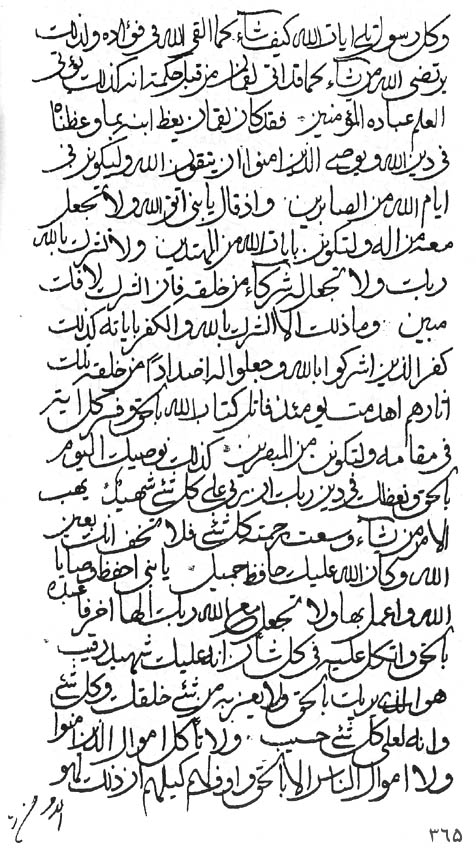 وكل رسول تلي ايات الله كيف شاء كما القى الله في فؤاده وذلك
يرتضى الله من شاء كما قد اتى لقمان من قبل حكمته انه كذلك يؤتي
العلم عباده المؤمنين فقد كان لقمان يعظ ابنه بما وعظناه
في دين الله ويوصي الذين امنوا ان يتقون الله وليكونن في
ايام الله من الصابرين واذ قال يا بني اتق الله ولا تجعل
معه من اله ولتكونن بايات الله من المهتدين ولا تشرك بالله
ربك ولا تجعل له شركاء من خلقه فان الشرك لافك
مبين وما ذلك الا الشرك بالله والكفر باياته كذلك
كفر الذين اشركوا بالله وجعلوا له اضدادا من خلقه تلك
اثارهم يومئذ فاتل كتاب الله بالحق وفي كل اية
في مقامه ولتكونن من المبصرين كذلك نوصيك اليوم
بالحق ونعظك في دين ربك ان ربي على كل شئ شهيد يهب
الامر من شاء وسعت رحمته كل شئ فلا تخف انك بعين
الله وكان الله عليك حافظ جميل يا بني احفظ وصايا
الله واعمل بها ولا تجعل مع الله ربك الها اخر فاعبده
بالحق واتكل عليه في كل شان انه عليك شهيد رقيب
هو الذي يربك بالحق ولا يعزب من شئ خلقك وكل شئ
وانه لعلى كل شئ حسيب ولا تأكل اموال الذين امنوا
ولا اموال الناس الا بالحق واوف لهم كيلهم ان ذلك لهو
٣٦٥